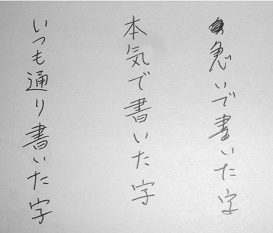 急いで書いた字
本気で書いた字
いつも通り書いた字